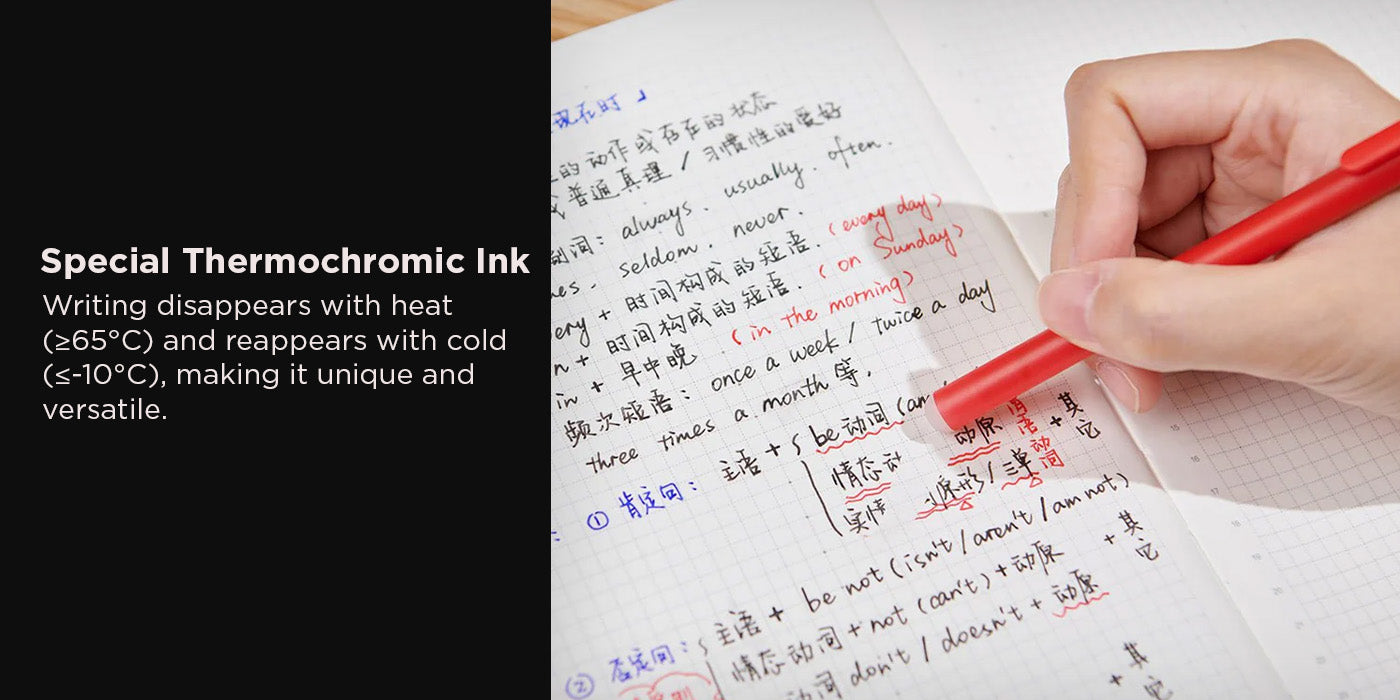 Special Thermochromic Ink
Writing disappears with heat
(≥65°C) and reappears with cold
(≤-10°C), making it unique and
versatile.
现在时」
的动作或存在的状态
普通真理 / 习惯性的爱好
always. usually. often.
seldom. never.
+ 时间构成的短语. (every day)
n + 时间构成的短语. (on Sunday)
in + 早中晚 (in the morning)
频次短语: once a week / twice a day
three times a month 等.
① 肯定句: 主语 + { be动词 (am
情态动 动原 + 其它
实情 原形 / 三单
② 否定句: { 主语 + be not (isn't / aren't / am not) + 其它
情态动词 + not (can't) + 动原
动词 don't / doesn't + 动原 + 其它